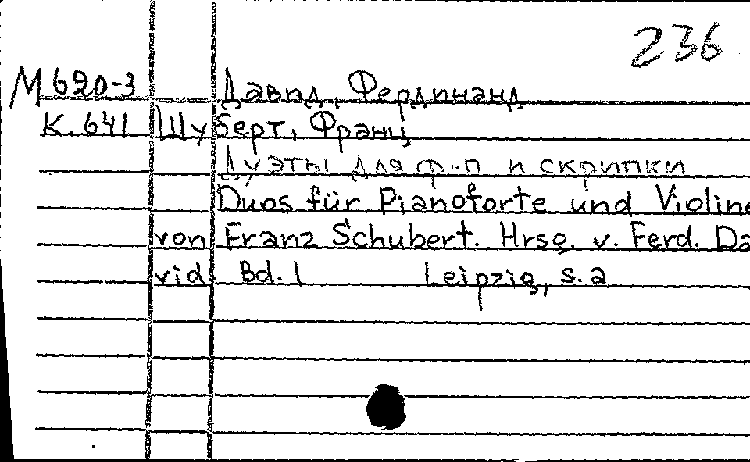 236
М 620-3 Давид, Фердинанд
К. 641 Шуберт, Франц
Дуэты для ф-п и скрипки
Duos für Pianoforte und Violine
von Franz Schubert. Hrsg. v. Ferd. Da
vid Bd. 1 Leipzig, s. a